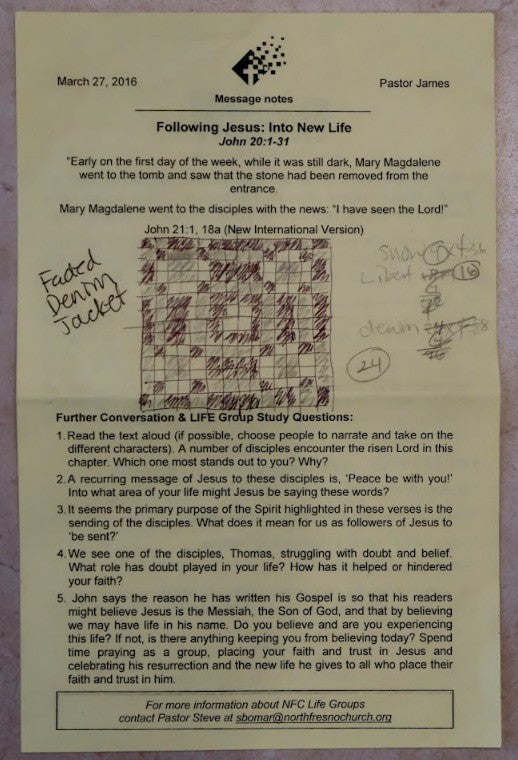 March 27, 2016
Pastor James
Message notes
Following Jesus: Into New Life
John 20:1-31
“Early on the first day of the week, while it was still dark, Mary Magdalene
went to the tomb and saw that the stone had been removed from the
entrance.
Mary Magdalene went to the disciples with the news: “I have seen the Lord!”
John 21:1, 18a (New International Version)
Faded
Denim
Jacket
Snow
16
denim
24
Further Conversation & LIFE Group Study Questions:
1. Read the text aloud (if possible, choose people to narrate and take on the
different characters). A number of disciples encounter the risen Lord in this
chapter. Which one most stands out to you? Why?
2. A recurring message of Jesus to these disciples is, ‘Peace be with you!’
Into what area of your life might Jesus be saying these words?
3. It seems the primary purpose of the Spirit highlighted in these verses is the
sending of the disciples. What does it mean for us as followers of Jesus to
‘be sent?’
4. We see one of the disciples, Thomas, struggling with doubt and belief.
What role has doubt played in your life? How has it helped or hindered
your faith?
5. John says the reason he has written his Gospel is so that his readers
might believe Jesus is the Messiah, the Son of God, and that by believing
we may have life in his name. Do you believe and are you experiencing
this life? If not, is there anything keeping you from believing today? Spend
time praying as a group, placing your faith and trust in Jesus and
celebrating his resurrection and the new life he gives to all who place their
faith and trust in him.
For more information about NFC Life Groups
contact Pastor Steve at sbomar@northfresnochurch.org